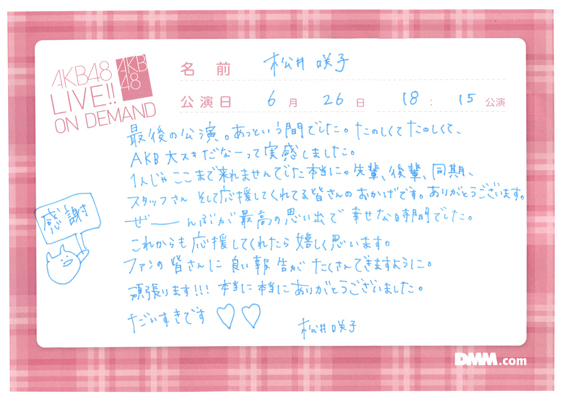 AKB48
LIVE!!
ON DEMAND
AKB
48
名前 松井咲子
公演日 6月 26日 18:15公演
最後の公演。あっという間でした。たのしくてたのしくて、
AKB大スキだなーって実感しました。
1人じゃここまで来れませんでした本当に。先輩、後輩、同期、
スタッフさん そして応援してくれてる皆さんのおかげです。ありがとうございます。
ぜーーんぶが最高の思い出で 幸せな時間でした。
これからも応援してくれたら嬉しく思います。
ファンの皆さんに良い報告がたくさんできますように。
頑張ります!!! 本当に本当にありがとうございました。
だいすきです♡♡
松井咲子
感謝
DMM.com